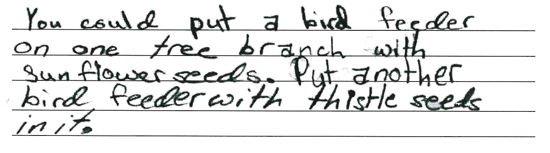 You could put a bird feeder
on one tree branch with
sunflower seeds. Put another
bird feeder with thistle seeds
in it.